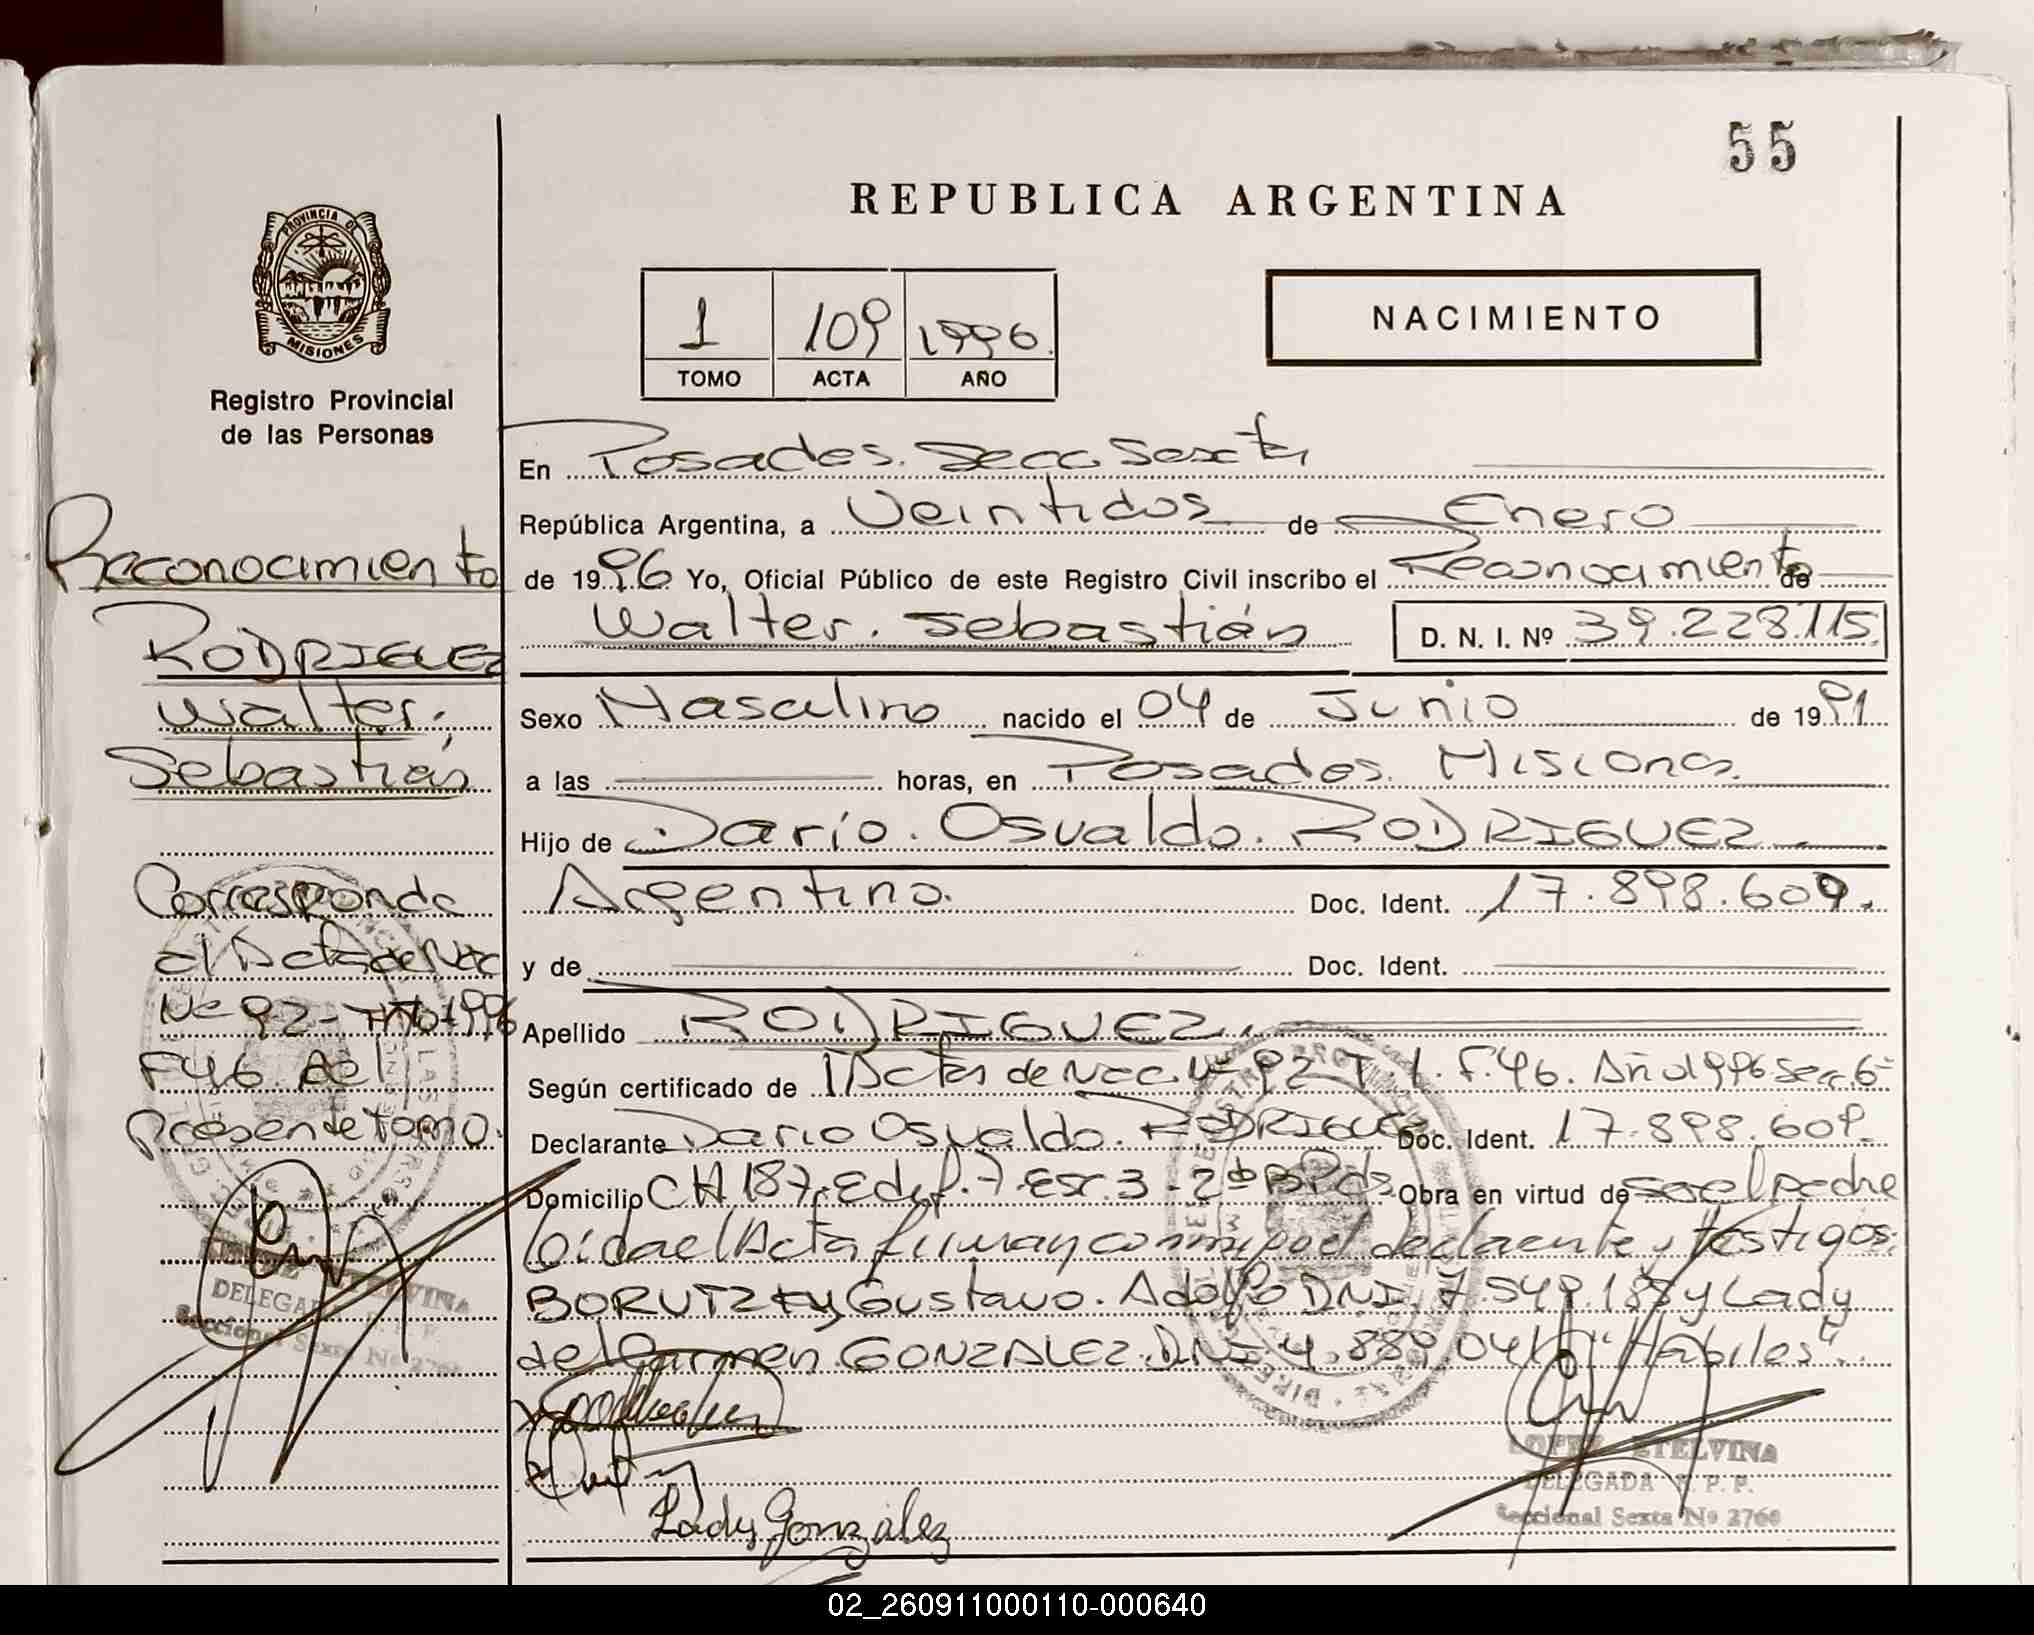 55
REPUBLICA ARGENTINA
PROVINCIA DE
MISIONES
Registro Provincial
de las Personas
1 109 1996.
TOMO ACTA AÑO
NACIMIENTO
En Posadas. Secc Sexta
República Argentina, a Veintidos de Enero
de 1996 Yo, Oficial Público de este Registro Civil inscribo el Reconocimiento de
Walter. Sebastián D. N. I. Nº 39.228.115
Sexo Masculino nacido el 04 de Junio de 1991
a las horas, en Posadas. Misiones
Hijo de Darío. Osvaldo. RODRIGUEZ
Argentino. Doc. Ident. 17.898.609.
y de Doc. Ident.
Apellido RODRIGUEZ.
Según certificado de Acta de Nac. Nº 92 T. 1. F. 46. Año 1996 Secc 6ª
Declarante Dario Osvaldo. RODRIGUEZ Doc. Ident. 17.898.609.
Domicilio CH 187. Edif. 7. Esc. 3 - 2do Obra en virtud de ser el padre
Leida el Acta firman conmigo el declarante y testigos:
BORUTZKY Gustavo. Adolfo DNI. 7.549.188 y Lady
del Carmen. GONZALEZ. DNI 4.889.041 "Habiles".
Lady González
LOPEZ ETELVINA
DELEGADA R. P. P.
Seccional Sexta Nº 2760
Reconocimiento
RODRIGUEZ
Walter.
Sebastián
Corresponde
al Acta de Nac
Nº 92 - Año 1996
F46. del
presente tomo.
ETELVINA
DELEGADA R. P. P.
Seccional Sexta Nº 2760
02_260911000110-000640